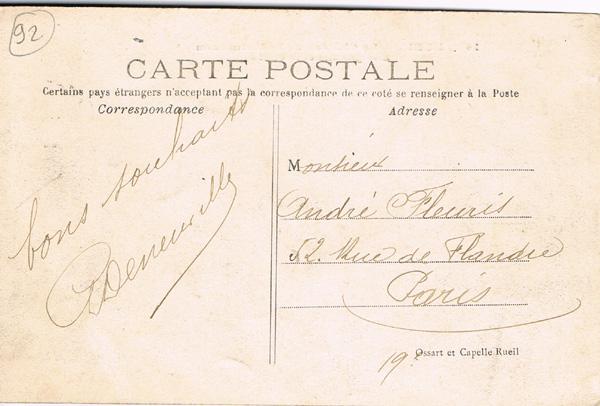 92
CARTE POSTALE
Certains pays étrangers n'acceptant pas la correspondance de ce coté se renseigner à la Poste
Correspondance
Adresse
bons souhaits
Monsieur
André Fleuris
52. Rue de Flandre
Paris
Ossart et Capelle Rueil